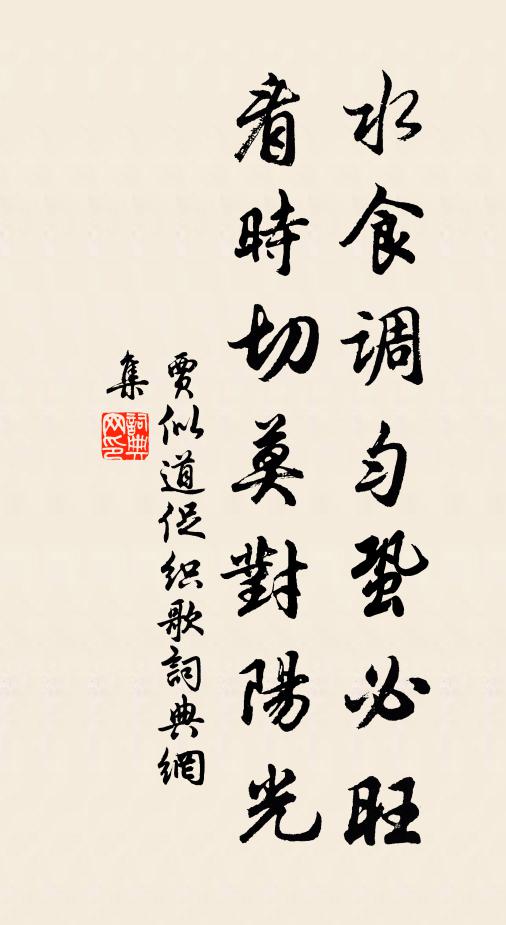 水食調勻蛩必旺
看時切莫對陽光
賈似道促织歌詞典網
集
詞典網印